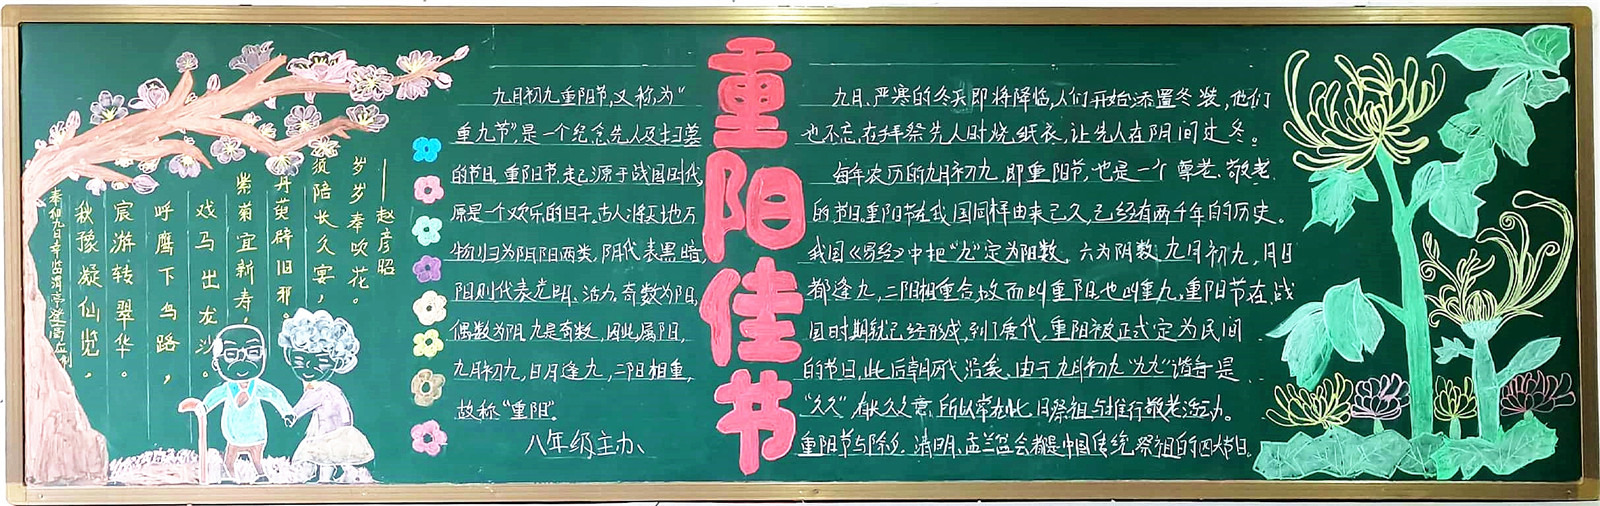 重阳佳节
奉和九日幸临渭亭登高应制
秋豫凝仙览，
宸游转翠华。
呼鹰下鸟路，
戏马出龙沙。
紫菊宜新寿，
丹萸辟旧邪。
须陪长久宴，
岁岁奉吹花。
——赵彦昭
九月初九重阳节，又称为“
重九节”，是一个纪念先人及扫墓
的节日。重阳节，起源于战国时代，
原是一个欢乐的日子。古人将天地万
物归为阴阳两类，阴代表黑暗，
阳则代表光明、活力。奇数为阳，
偶数为阴。九是奇数，因此属阳，
九月初九，日月逢九，二阳相重，
故称“重阳”。
八年级主办
九月、严寒的冬天即将降临，人们开始添置冬装，他们
也不忘在拜祭先人时烧纸衣，让先人在阴间过冬。
每年农历的九月初九，即重阳节，也是一个尊老、敬老
的节日。重阳节在我国同样由来已久，已经有两千年的历史。
我国《易经》中把“九”定为阳数，六为阴数，九月初九，月日
都逢九，二阳相重合，故而叫重阳，也叫重九。重阳节在战
国时期就已经形成，到了唐代，重阳被正式定为民间
的节日，此后朝历代沿袭。由于九月初九“九九”谐音是
“久久”有长久之意，所以常在此日祭祖与推行敬老活动。
重阳节与除夕、清明、盂兰盆会都是中国传统祭祖的四大节日。